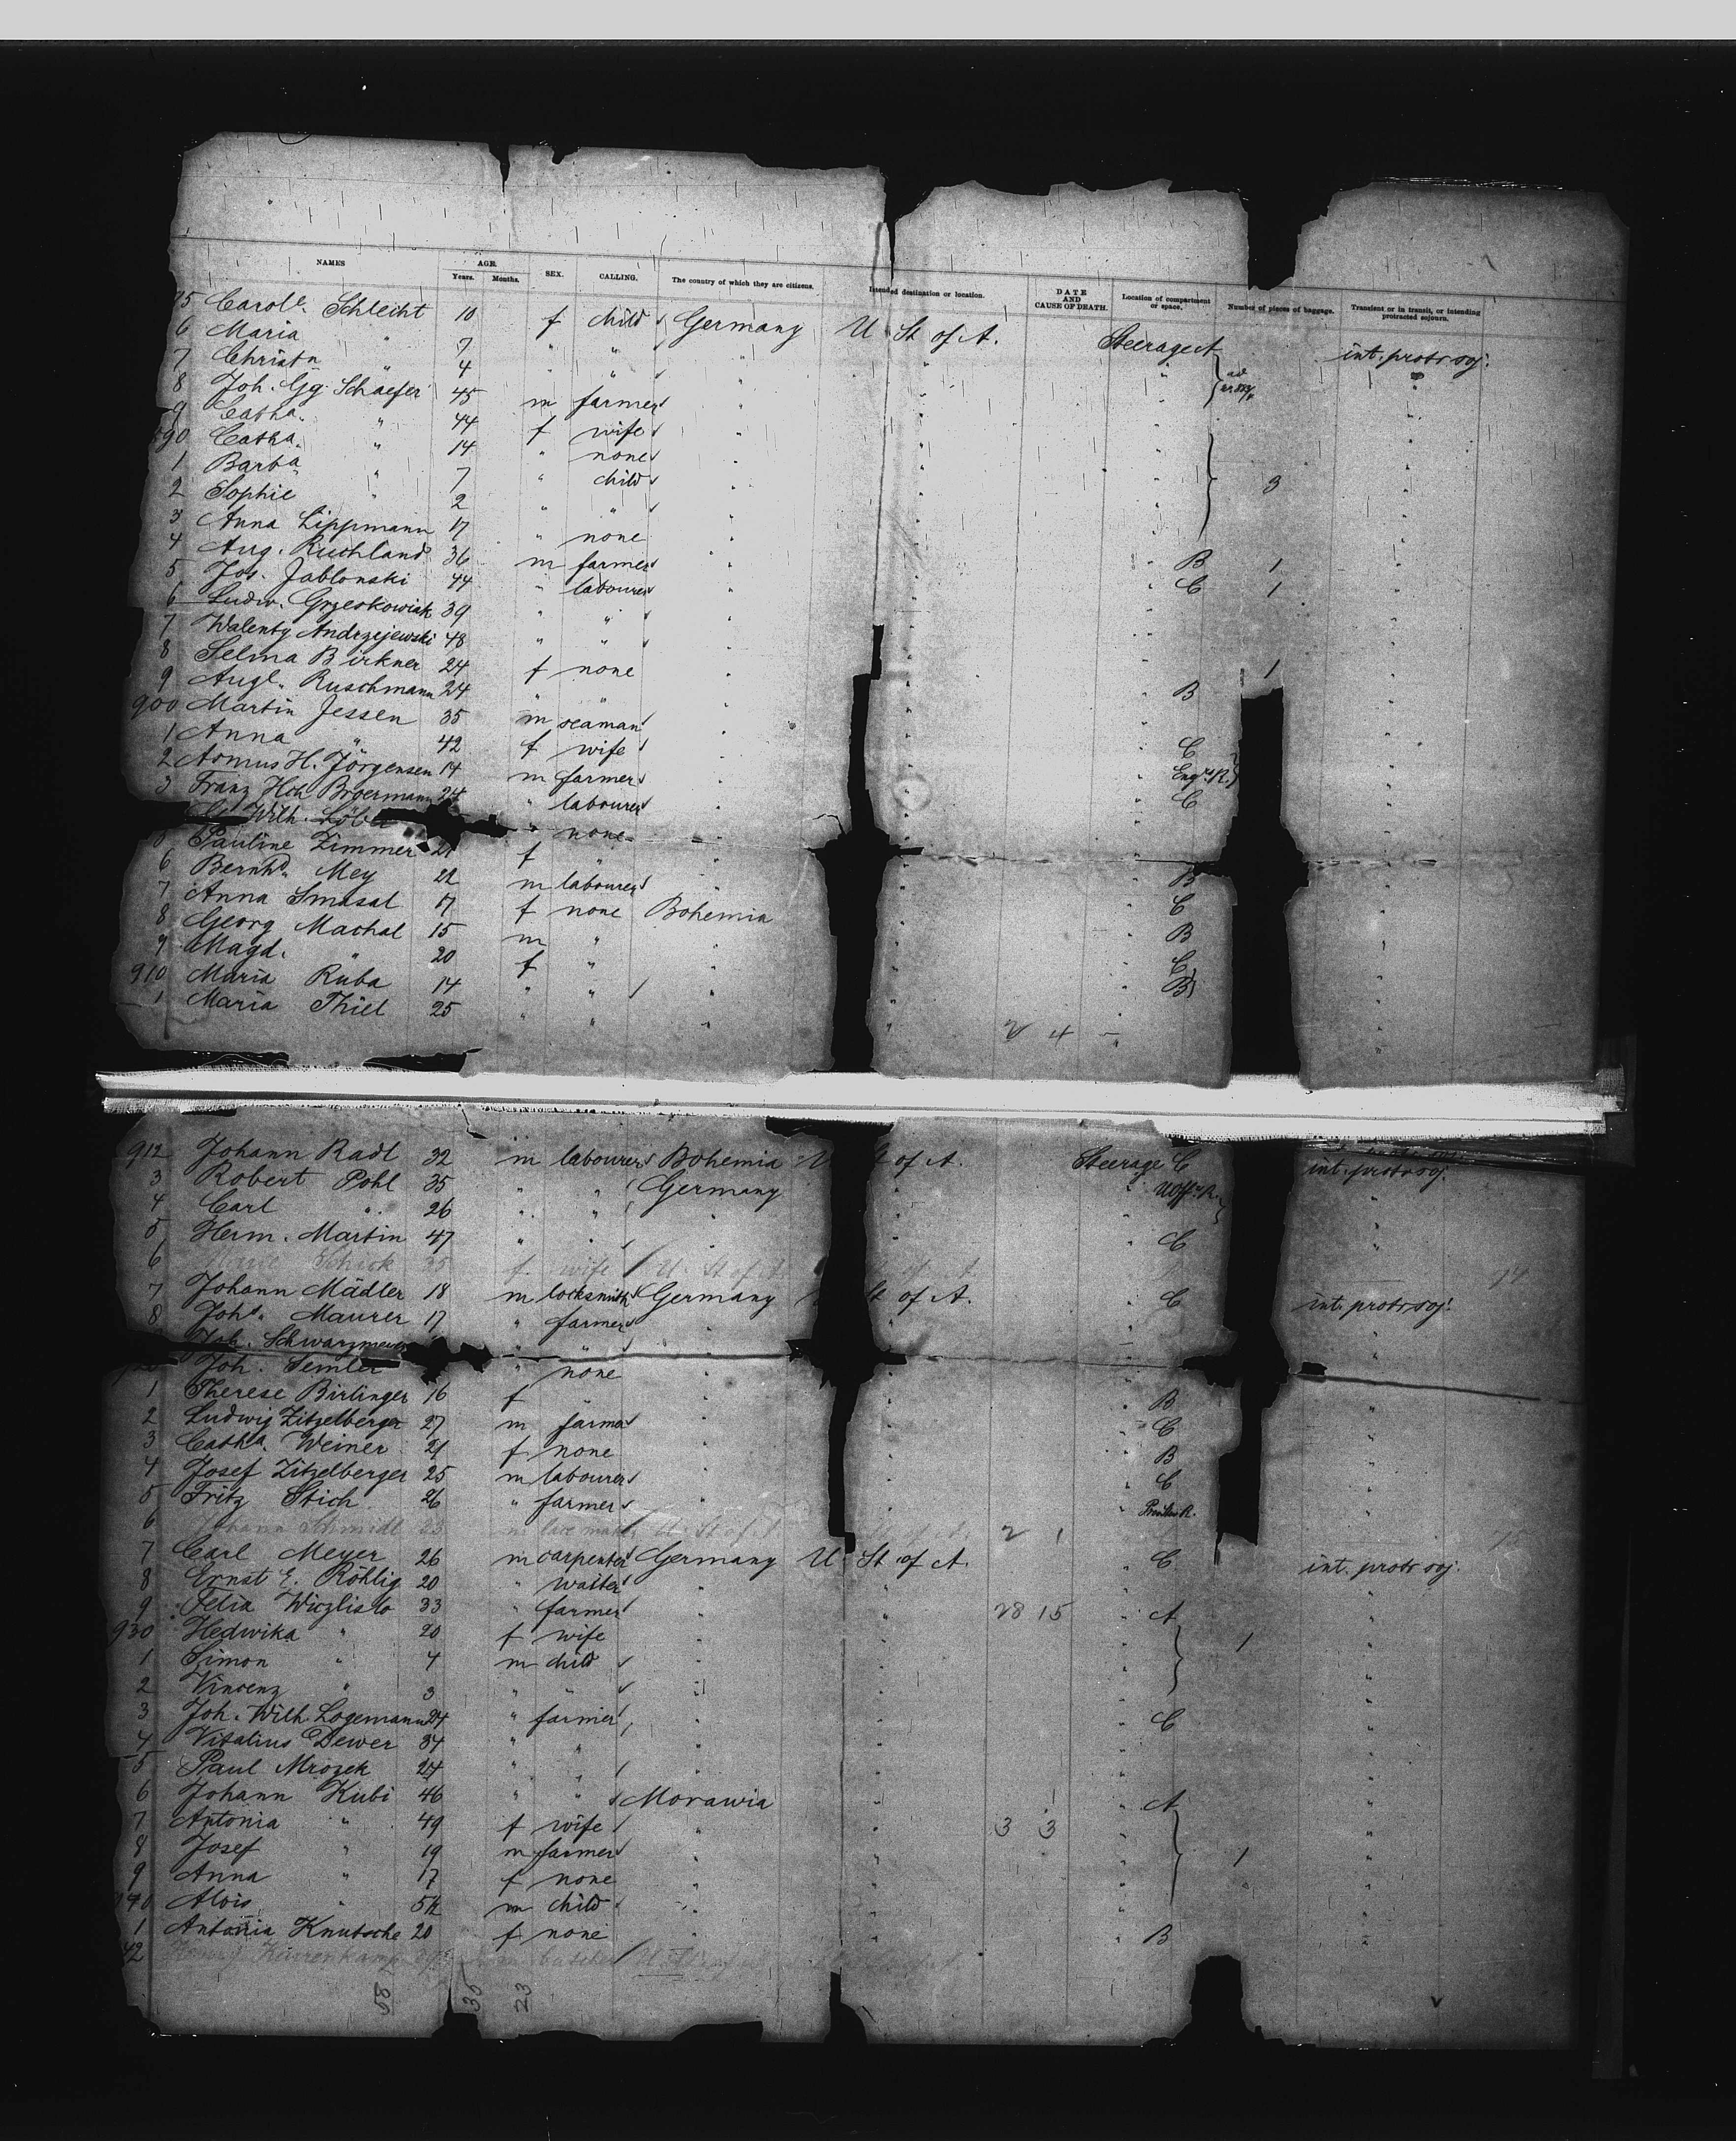 NAMES AGE. Years. Months. SEX. CALLING. The country of which they are citizens. Intended destination or location. DATE AND CAUSE OF DEATH. Location of compartment or space. Number of pieces of baggage. Transient or in transit, or intending protracted sojourn.
Carole. Schlecht 10 f child Germany U St of A. Steerage A int. protr soj.
6 Maria " 7 " " " " "
7 Christn " 4 " " " " "
8 Joh. Gg. Schaefer 45 m farmer " " " "
9 Catha. " 44 f wife " " " "
890 Catha. " 14 " none " " " "
1 Barba " 7 " child " " " 3 "
2 Sophie " 2 " " " " " "
3 Anna Lippmann 17 " none " " " "
4 Aug. Ruchland 36 m farmer " " " B 1 "
5 Jos. Jablonski 44 " labourer " " " C 1 "
6 Ludw. Grzeskowiak 39 " " " " " "
7 Walenty Andrzejewski 48 " " " " " "
8 Selma Birkner 24 f none " " " 1 "
9 Augl. Ruschmann 24 " " " " " B "
900 Martin Jessen 35 m seaman " " " "
1 Anna " 42 f wife " " " C "
2 Asmus H. Jörgensen 14 m farmer " " " Engrs R. "
3 Franz Hch Broermann 24 " labourer " " " C "
Wilh. Löber " none " " " "
Pauline Zimmer 21 f " " " " "
6 Bernhd. Mey 22 m labourer " " " B "
7 Anna Smasal 17 f none Bohemia " " C "
8 Georg Machal 15 m " " " " B "
9 Magd. " 20 f " " " " C "
910 Maria Ruba 14 " " " " " B "
1 Maria Thiel 25 " " " " 2 4 " "
912 Johann Radl 32 m labourer Bohemia U of A. Steerage C int. protr soj.
3 Robert Pohl 35 " " Germany " " UOff. R. "
4 Carl " 26 " " " " " "
5 Herm. Martin 47 " " " " " C "
6 Schick 35 f wife U. St of A 14
7 Johann Mädler 18 m locksmith Germany St of A. " C int. protr soj.
8 Johs. Maurer 17 " farmer " " " "
Joh. Schwarzmeier " " " " " "
Joh. Semler " none " " " "
1 Therese Birlinger 16 f " " " " B "
2 Ludwig Zitzelberger 27 m farmer " " " C "
3 Catha. Weiner 21 f none " " " B "
4 Josef Zitzelberger 25 m labourer " " " C "
5 Fritz Stich 26 " farmer " " " "
6 Johann Schmidt 23 m U. St of A 2 1 15
7 Carl Meyer 26 m carpenter Germany U St of A. " C int. protr soj.
8 Ernst E. Röhlig 20 " waiter " " " "
9 Felix Wiczlislo 33 " farmer " " 28 15 " A "
930 Hedwika " 20 f wife " " " 1 "
1 Simon " 4 m child " " " "
2 Vincenz " 3 " " " " " "
3 Joh. Wilh. Logemann 24 " farmer " " " C "
4 Vitalius Dewer 34 " " " " " "
5 Paul Mrozek 24 " " " " " "
6 Johann Kubi 46 " " Morawia " " A "
7 Antonia " 49 f wife " " 3 3 " "
8 Josef " 19 m farmer " " " 1 "
9 Anna " 17 f none " " " "
940 Alois " 5½ m child " " " "
1 Antonia Knutsche 20 f none " " " B "
42 butcher
58 35 23